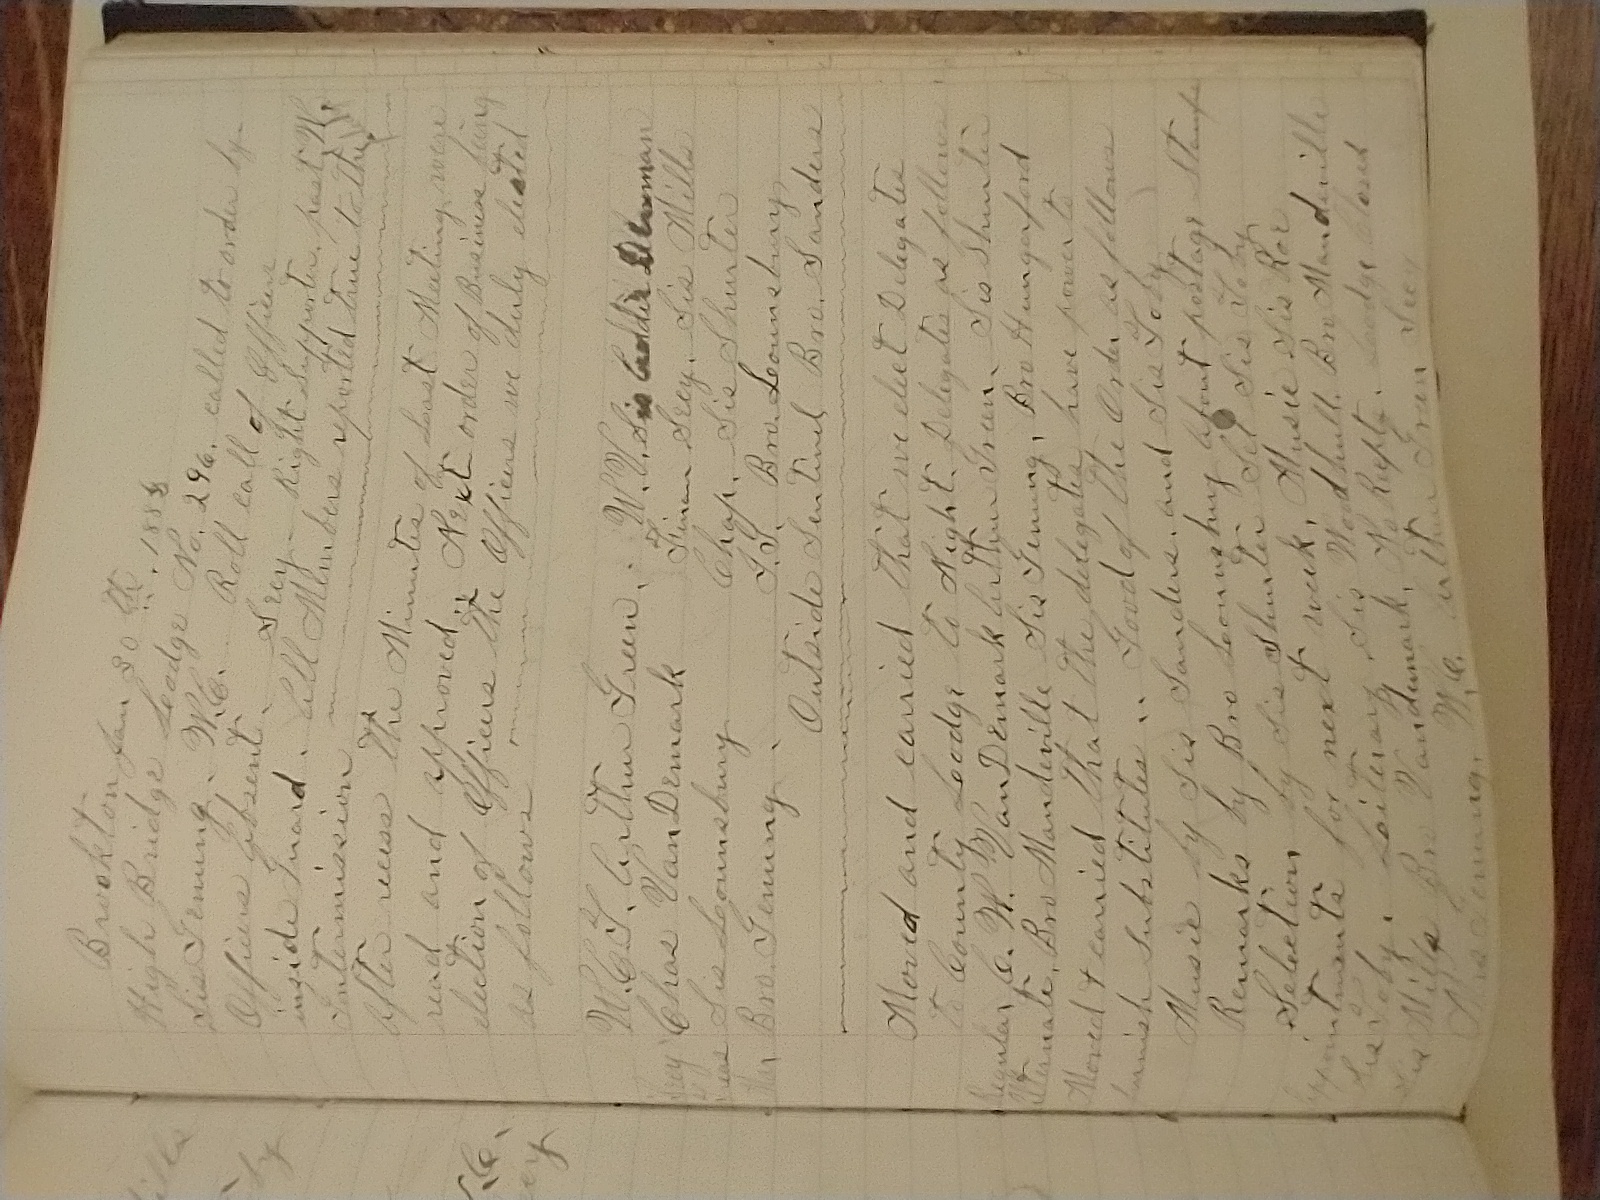 Brookton Jan 30th, 1888
High Bridge Loadge No. 296. called to order by
Sis Genung. W.C. Roll call of Officers
Officers Absent. Secy. Right Supporter, past W.
inside Guard. All Members reported true to the
Intermission
After recess the Minutes of Last Meeting were
read and approved. Next order of Business being
election of Officers the Officers we duly elected
as follows
W.C.T. Arthur Green. W.V. Sis Denman
Secy Chas VanDemark Finan Secy. Sis Mills
Treas Sis Lounsbury Chap. Sis Shurter
Mar Bro. Genung. I.S. Bro. Lounsbury
Outside Sentinel Bro. Sanders
Moved and carried that we elect Delegates
to County Loadge to Night. Delegates as follows
Regular, C. W. VanDemark Arthur Green. Sis Shurter
Alternate, Bro Mandeville Sis Genung, Bro Hungerford
Moved & carried that the delegates have power to
furnish substitutes. Good of the Order as follows
Music by Sis Sanders. and Sis Toby
Remarks by Bro Lounsbury about postage Stamps
Selection, by Sis Shurter Sel Sis Toby
Appointments for next week. Music Sis Roe
Sis Toby. Laiterary. Sis Woodhull. Bro Mandeville
Sis Mills Bro Vandemark, No Rept. Loadge closed
Sis Genung. W.C. Arthur Green Secy